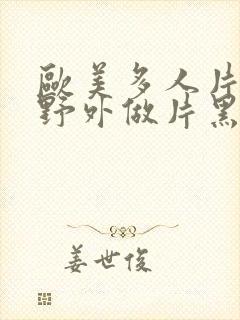 歐美多人片
野外做片黑
姜世俊